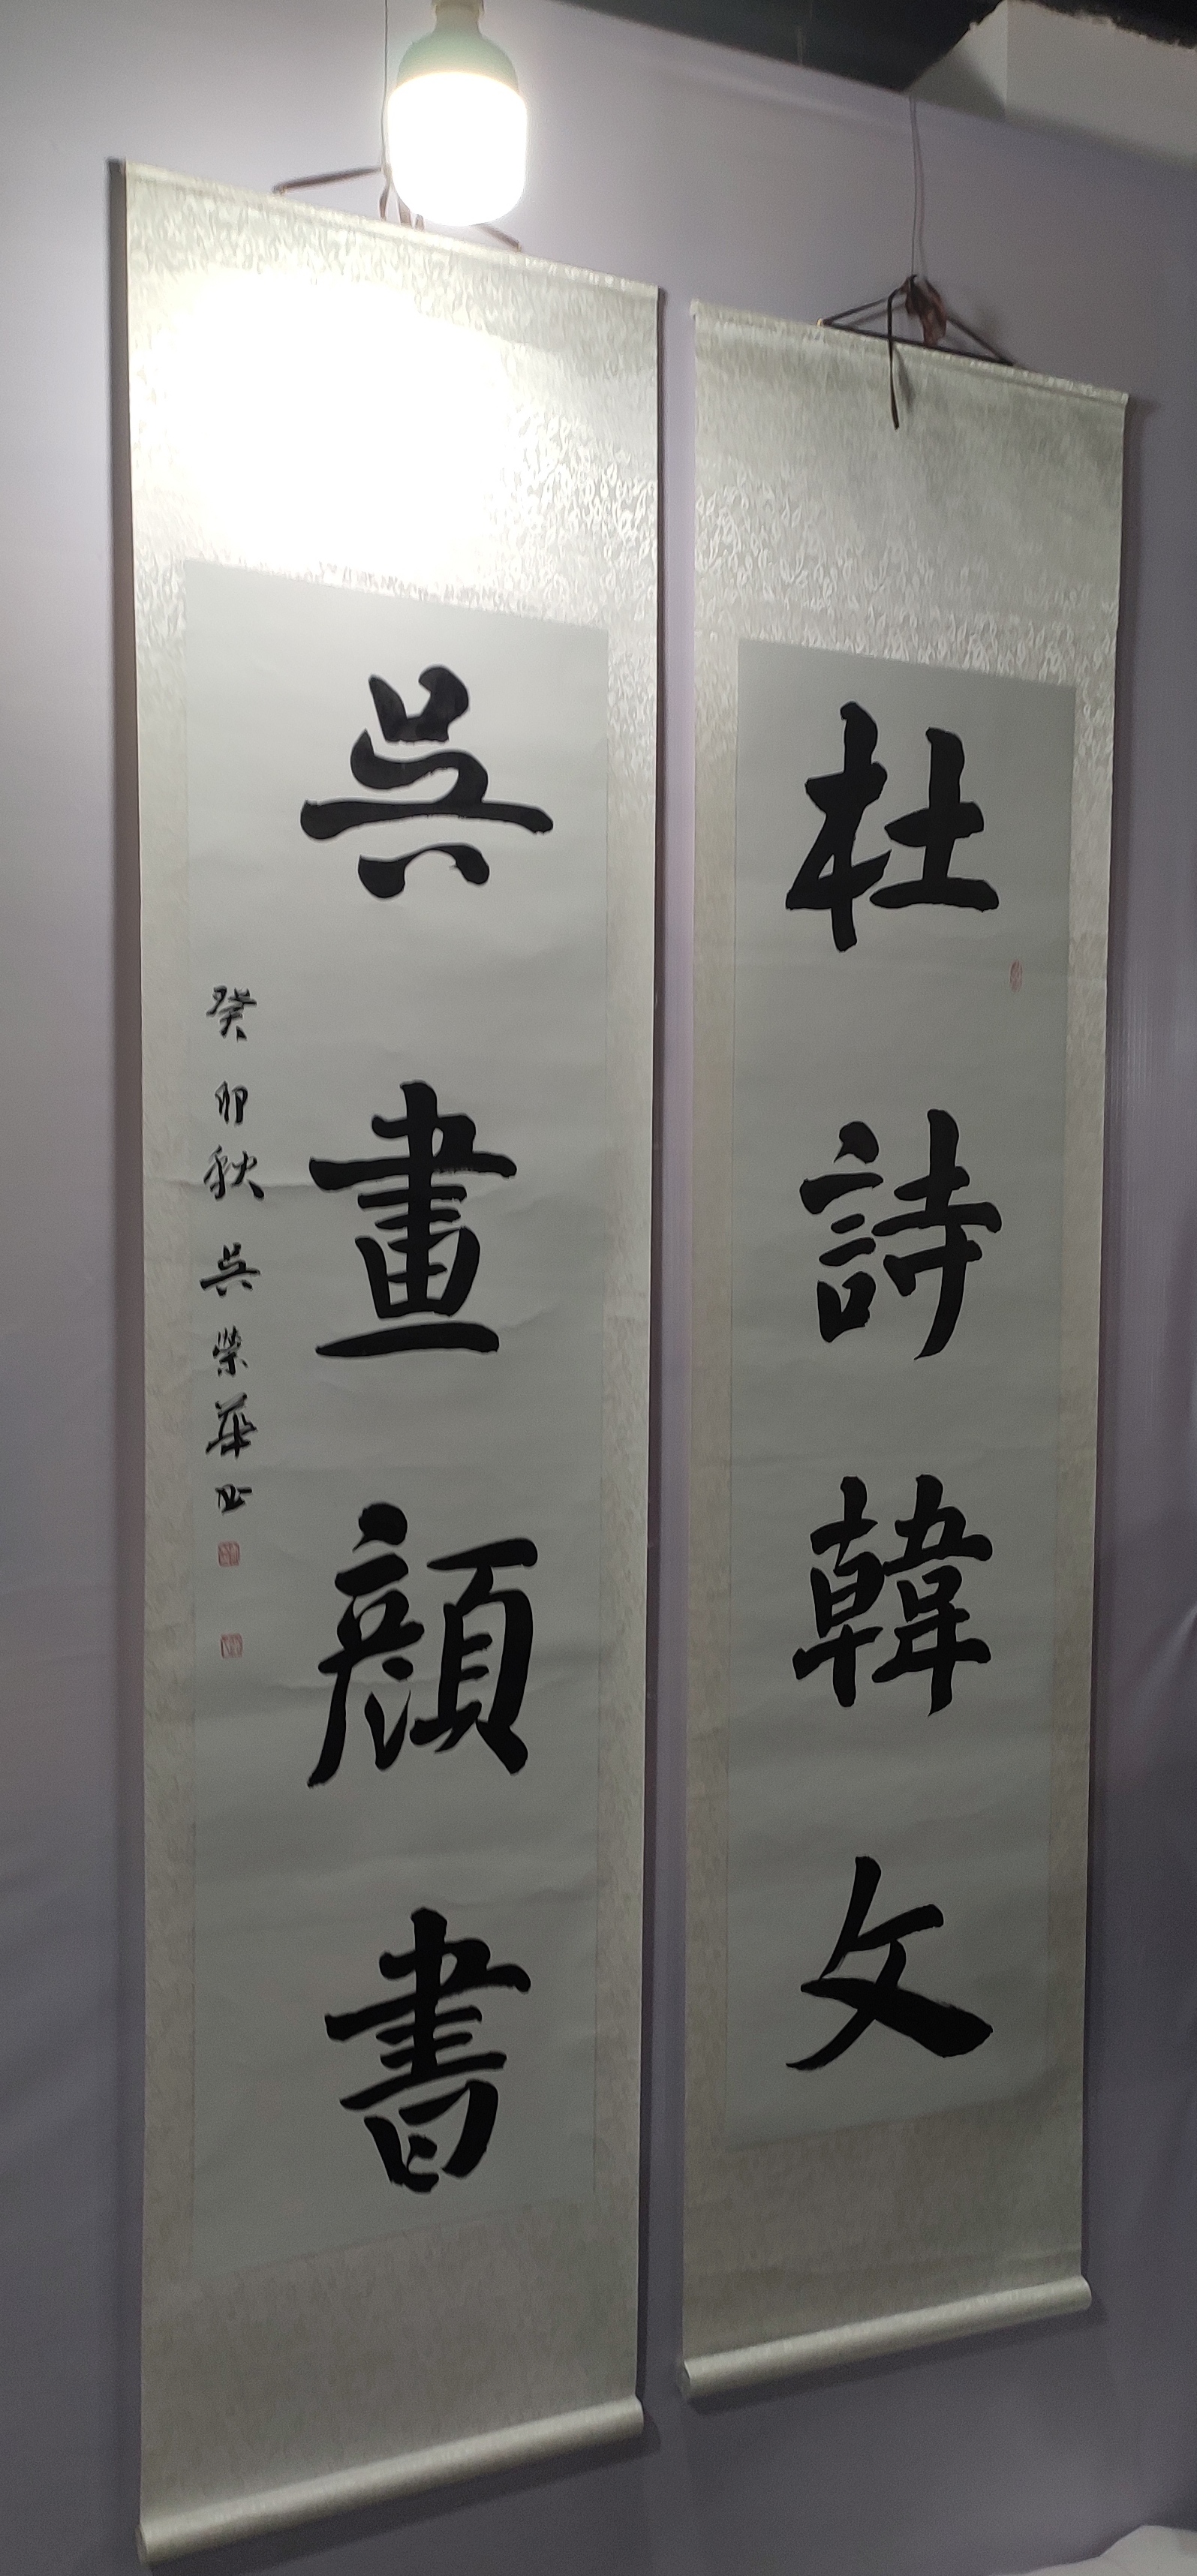 杜詩韓文
吳畫顔書
癸卯秋吳榮華書